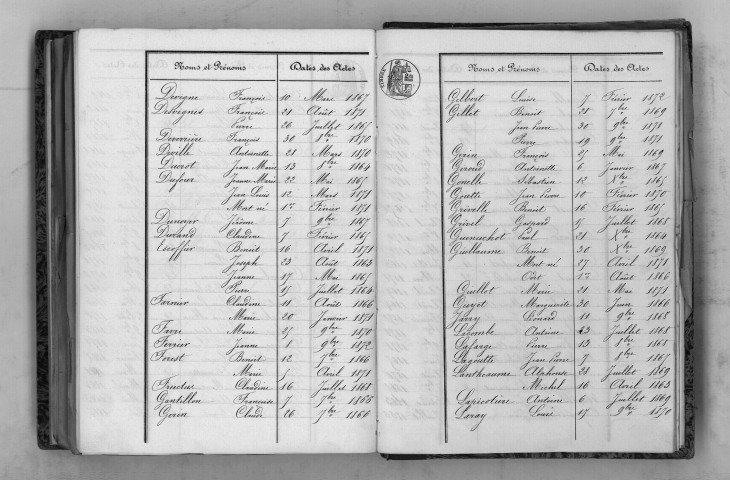 Noms et Prénoms Dates des Actes
Devigne François 10 Mars 1867
Desvignes Françoise 21 Août 1871
Pierre 26 Juillet 1865
François 30 8bre 1870
Antoinette 28 Mars 1870
Ducrot Jean Marie 13 8bre 1864
Dufour Jeanne Marie 22 Mai 1867
Jean Louis 12 Mars 1871
Mort né 1er Février 1871
Dunoyer Jérôme 7 9bre 1867
Durand Claudine 7 Février 1865
Escoffier Benoit 16 Avril 1871
Joseph 23 Août 1863
Jeanne 17 Mai 1865
Pierre 15 Juillet 1864
Farnier Claudine 11 Août 1866
Marie 20 Janvier 1871
Favre Marie 25 9bre 1870
Ferrier Jeanne 8 9bre 1872
Forest Benoit 12 7bre 1866
Marie 5 Avril 1871
Claudine 16 Juillet 1868
Gantillon Françoise 7 7bre 1865
Gerin Claude 26 7bre 1866
Noms et Prénoms Dates des Actes
Gilbert Louise 7 Février 1872
Gillet Benoit 28 7bre 1869
Jean Pierre 30 9bre 1871
19 9bre 1871
Girin François 27 Mai 1869
Giroud Antoinette 6 Janvier 1867
Gonelle Sébastien 12 1865
Jean Pierre 10 Février 1872
Greville Benoit 16 Février 1865
Grivel Gaspard 15 Juillet 1868
Guenuchot Paul 21 Xbre 1864
Guillaume Benoit 30 Xbre 1869
Mort né 27 Avril 1871
1er Août 1866
Guillet Marie 21 Mai 1871
Guyot Marguerite 30 Juin 1866
Jarry Bonard 11 9bre 1868
Lacombe Antoine 23 Juillet 1868
Lafarge Pierre 13 1868
Lagoutte Jean Pierre 7 1867
Lantheaume Alphonse 28 Juillet 1869
Michel 16 Avril 1863
Lapicotière Antoine 6 Juillet 1869
Laray Louis 17 9bre 1870